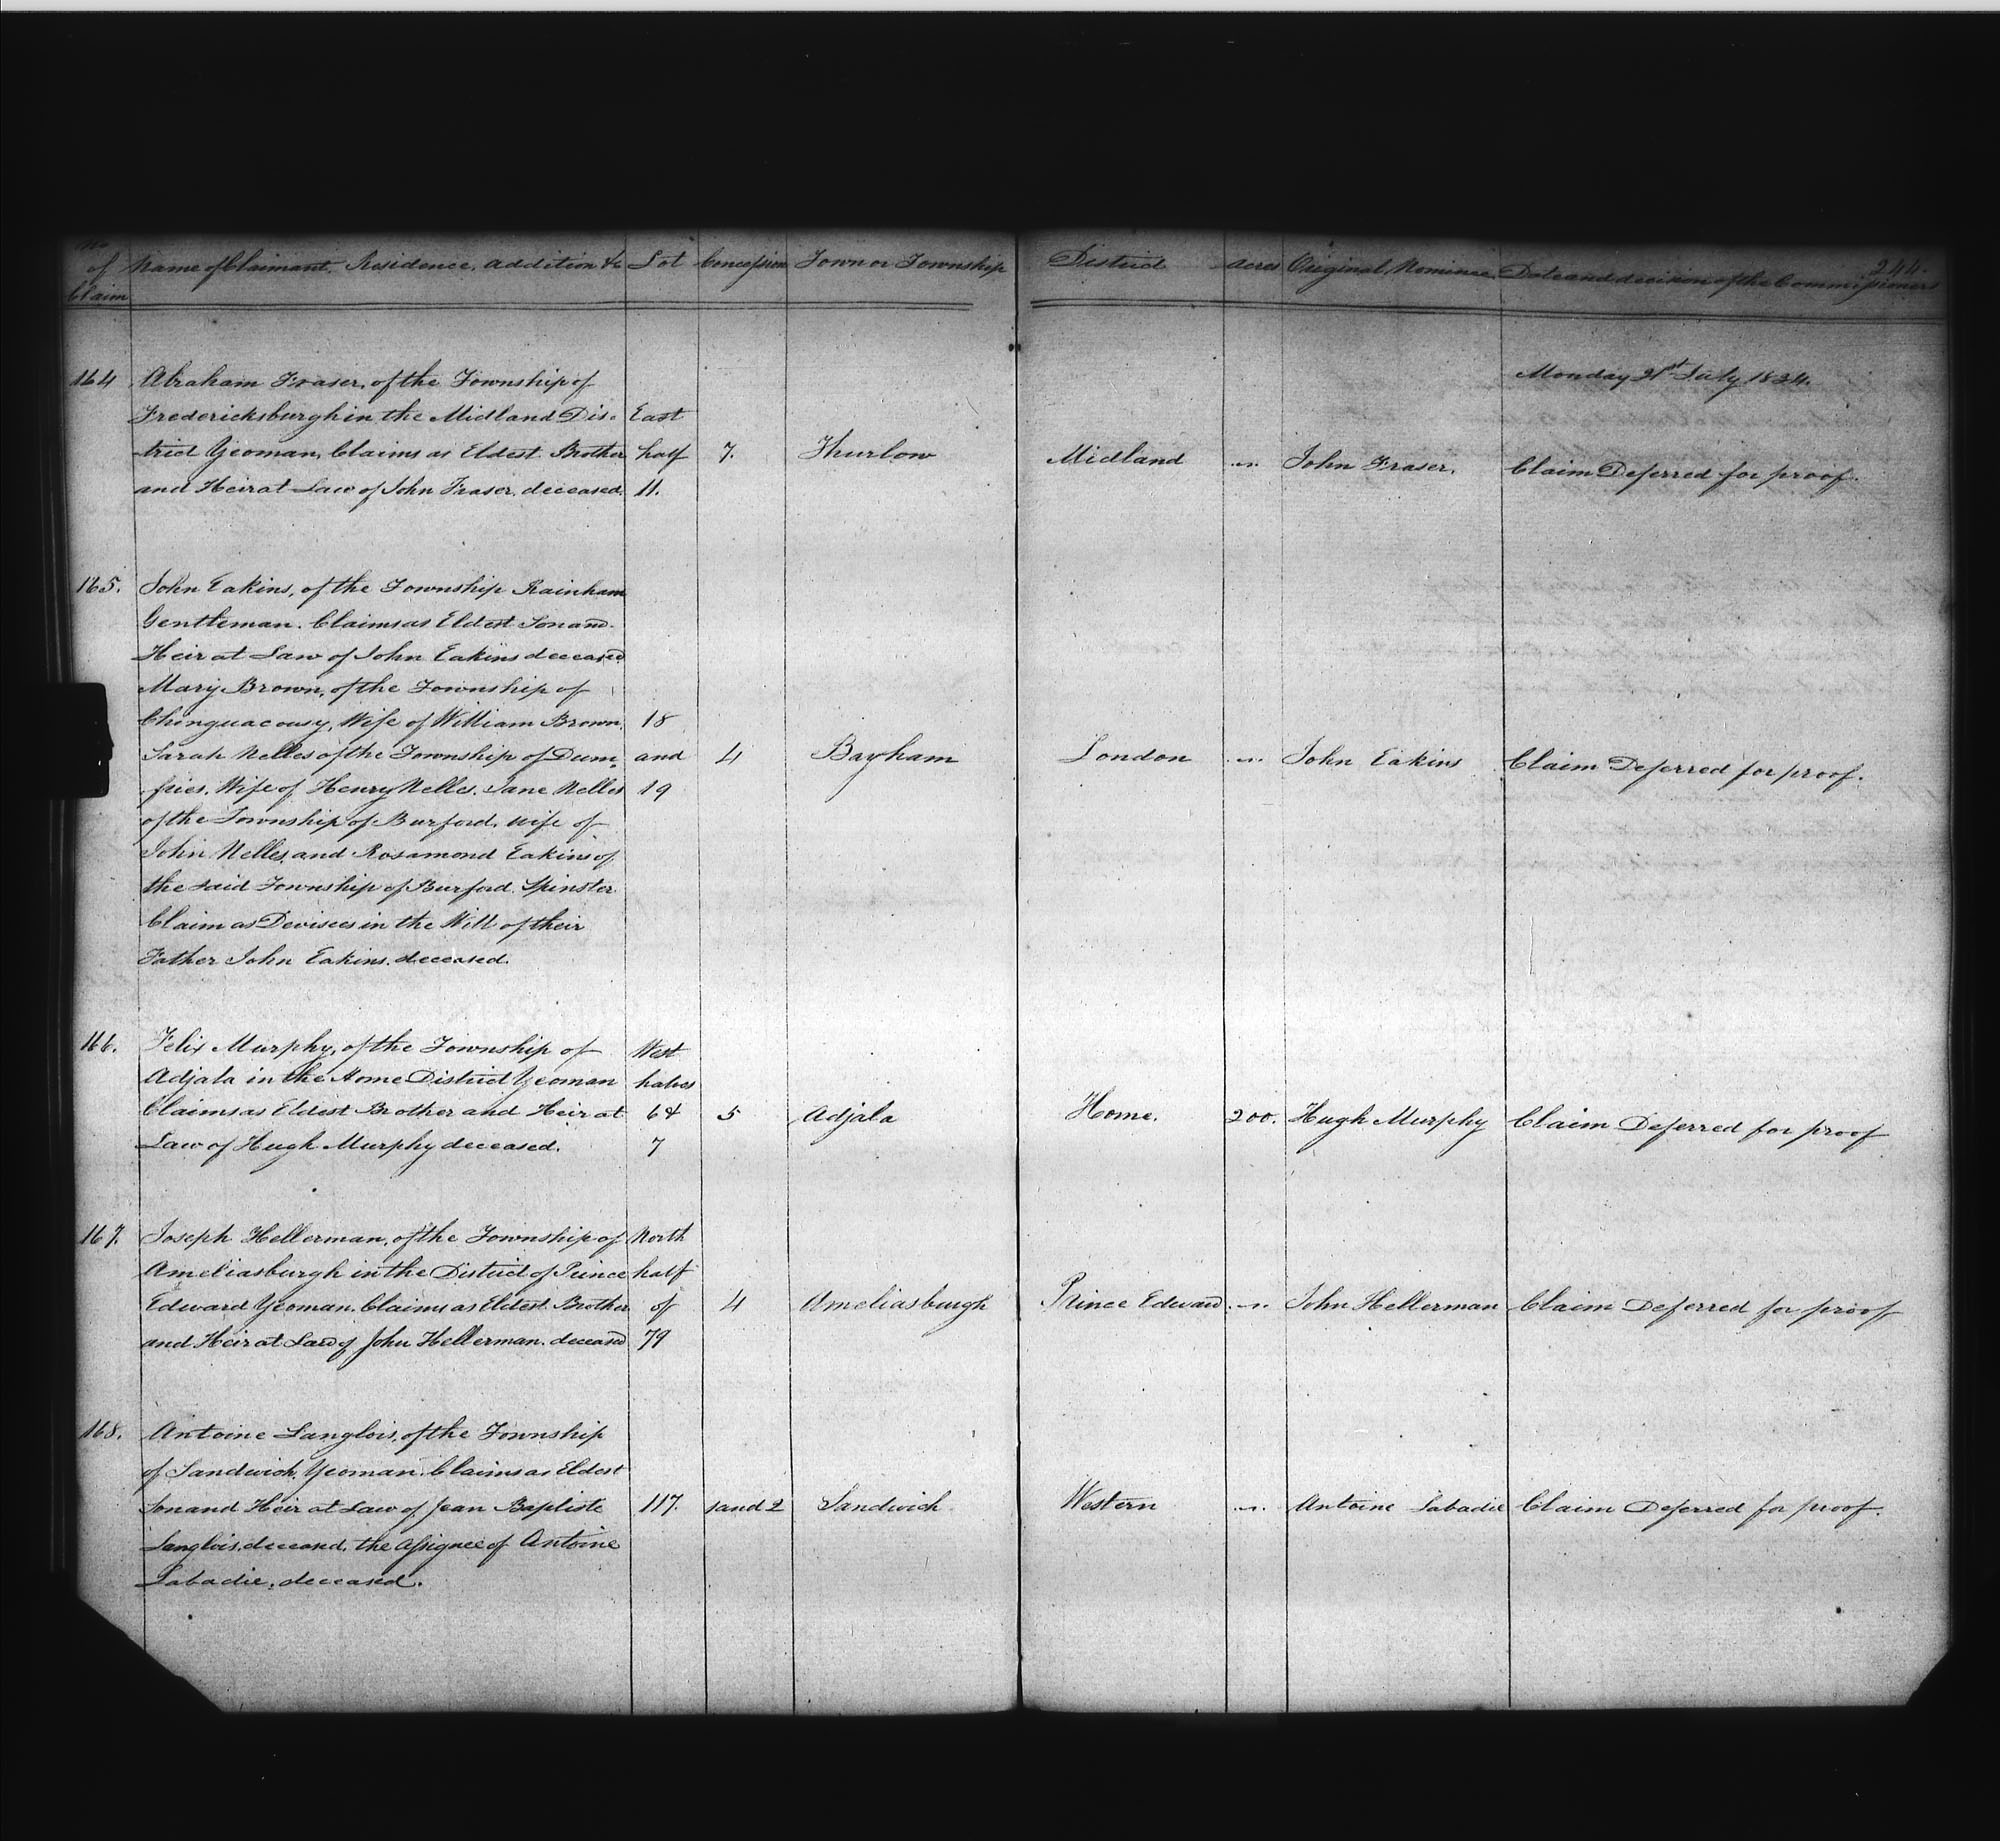 No
of
Claim
Name of Claimant, Residence, addition &c
Lot
Concession
Town or Township
District
acres
Original Nominee
Date and decision of the Commissioners
244.
Monday 21st July 1834.
164
Abraham Fraser, of the Township of
Fredericksburgh in the Midland Dis-
trict Yeoman, Claims as Eldest Brother
and Heir at Law of John Fraser, deceased.
East
half
11.
7.
Thurlow
Midland
John Fraser.
Claim Deferred for proof.
165.
John Eakins, of the Township Rainham
Gentleman. Claims as Eldest Son and
Heir at Law of John Eakins deceased
Mary Brown, of the Township of
Chinguacousy, Wife of William Brown.
Sarah Nelles of the Township of Dum-
fries, Wife of Henry Nelles. Jane Nelles
of the Township of Burford, wife of
John Nelles, and Rosamond Eakins of
the said Township of Burford Spinster
Claim as Devisees in the Will of their
Father John Eakins. deceased.
18
and
19
4
Bayham
London
John Eakins
Claim Deferred for proof.
166.
Felix Murphy, of the Township of
Adjala in the Home District Yeoman
Claims as Eldest Brother and Heir at
Law of Hugh Murphy deceased.
West
halves
6 &
7
5
Adjala
Home.
200.
Hugh Murphy
Claim Deferred for proof
167.
Joseph Hellerman, of the Township of
Ameliasburgh in the District of Prince
Edward Yeoman. Claims as Eldest Brother
and Heir at Law of John Hellerman. deceased
North
half
of
79
4
Ameliasburgh
Prince Edward
John Hellerman
Claim Deferred for proof
168.
Antoine Langlois, of the Township
of Sandwich, Yeoman. Claims as Eldest
Son and Heir at Law of Jean Baptiste
Langlois, deceased, the Assignee of Antoine
Labadie, deceased.
117.
1 and 2
Sandwich
Western
Antoine Labadie
Claim Deferred for proof.